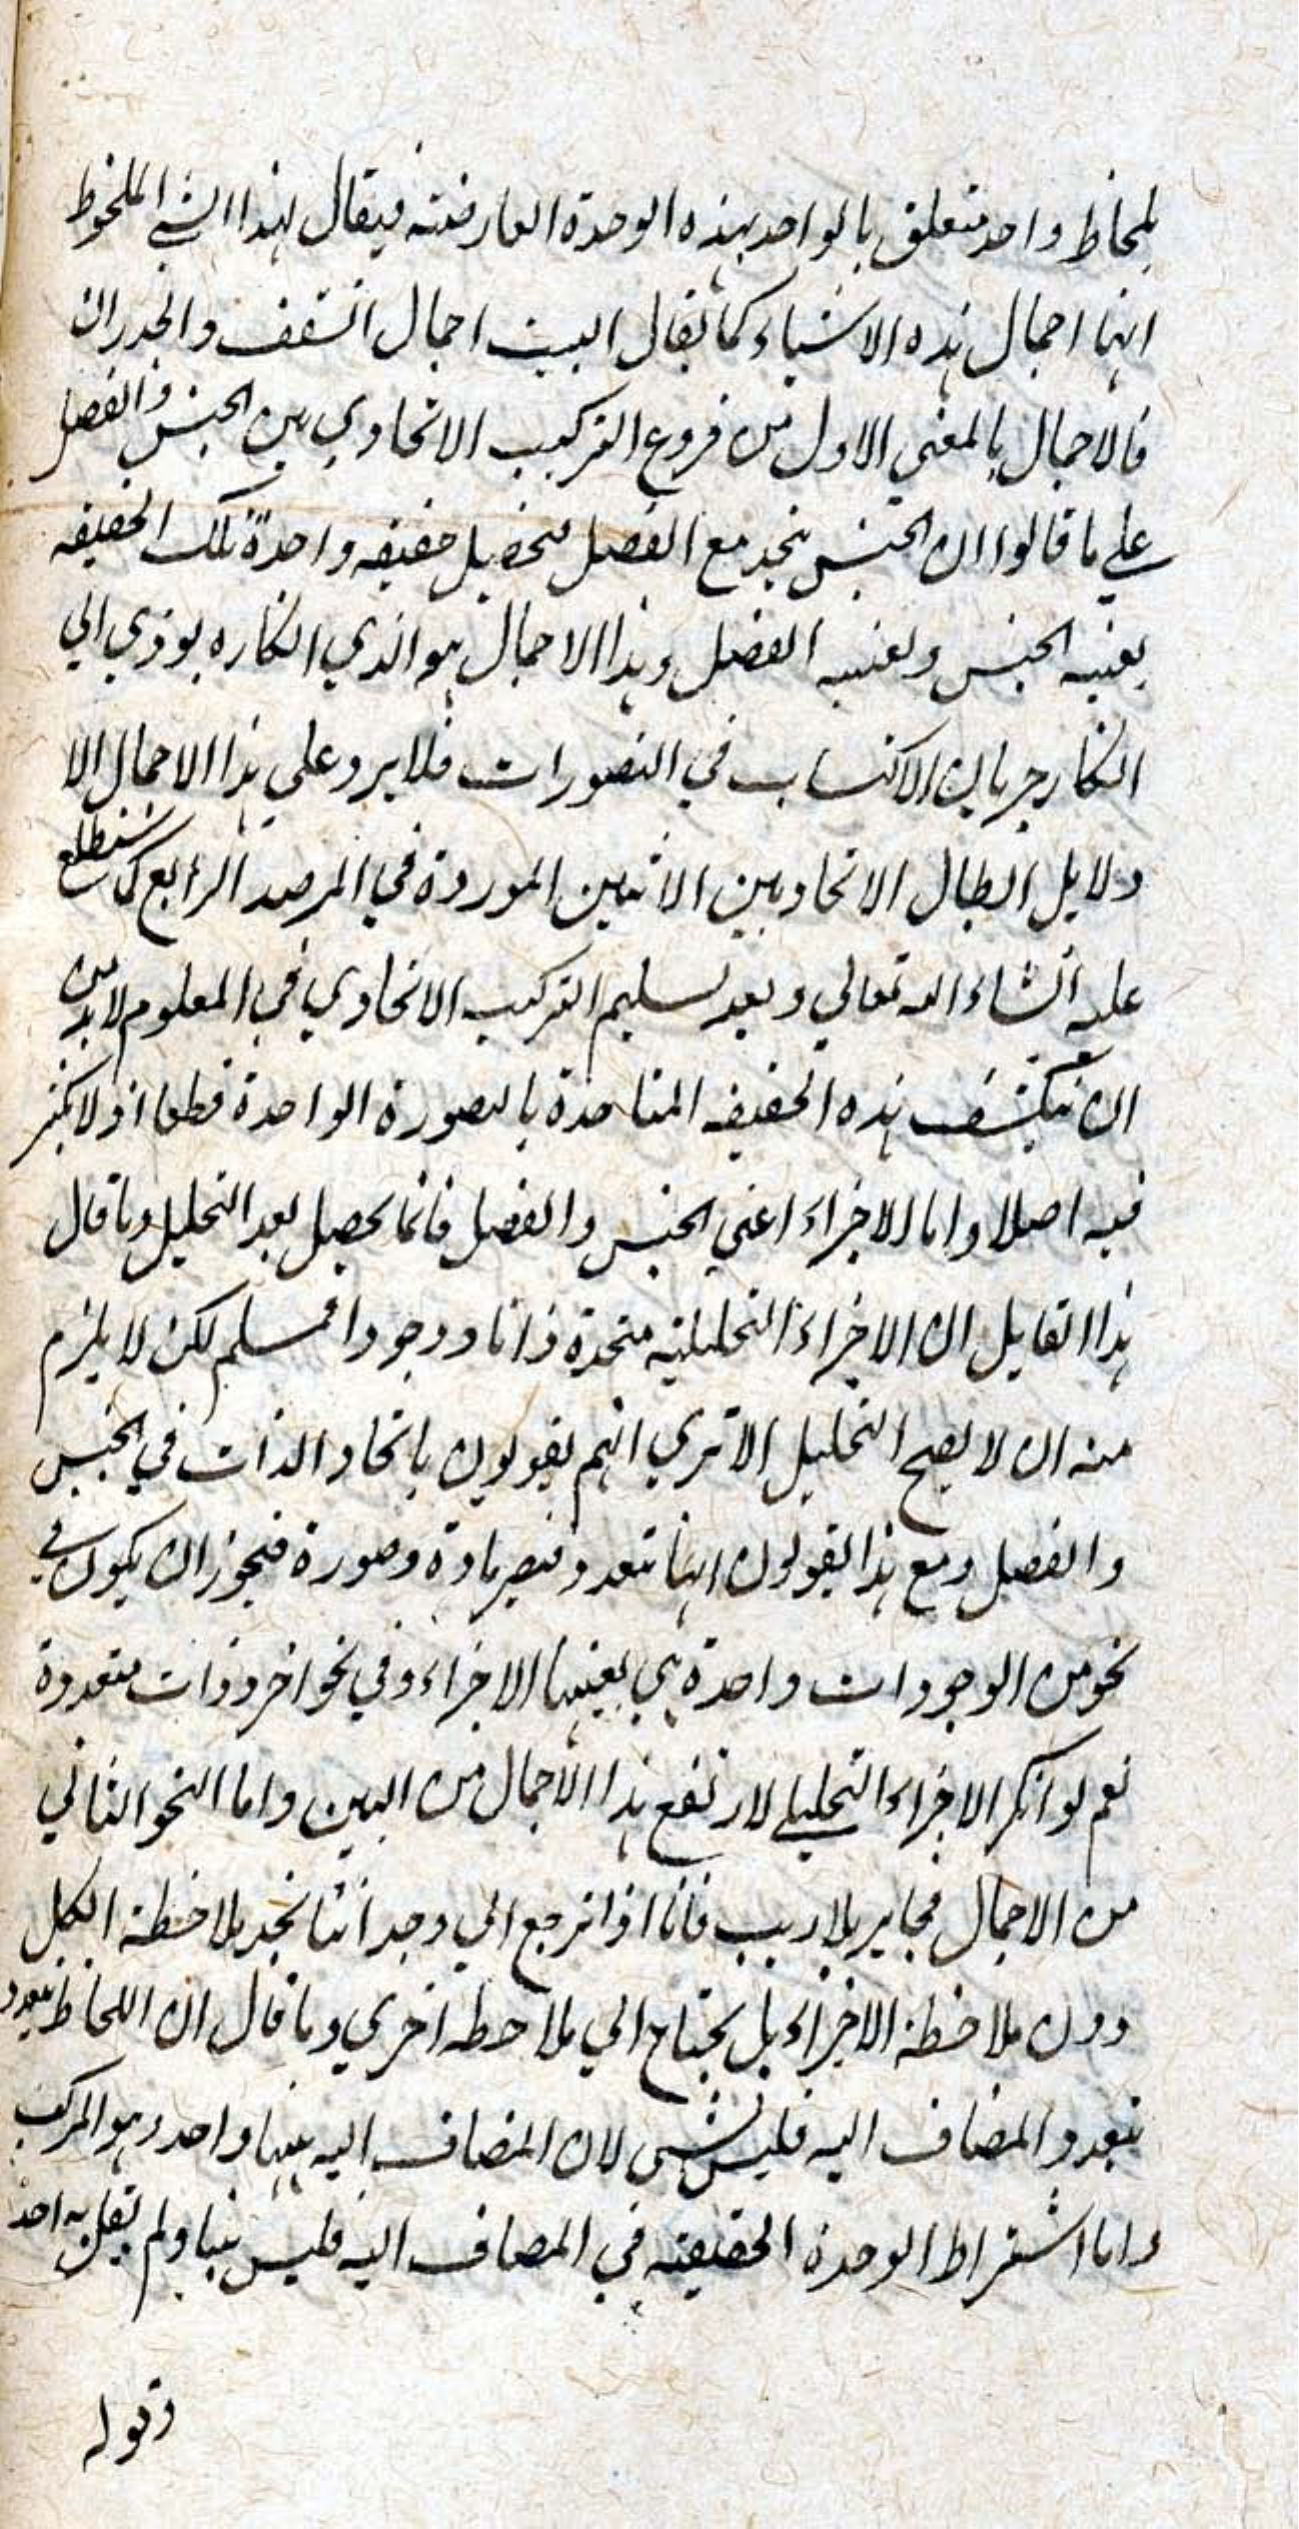 بلحاظ واحد متعلق بالواحد بهذه الوحدة العارضة فيقال لهذا الشي الملحوظ
انها اجمال هذه الاشياء كما يقال البيت اجمال السقف والجدران
فالاجمال بالمعني الاول من فروع التركيب الاتحادي بين الجنس والفصل
علي ما قالوا ان الجنس يتحد مع الفصل فيحصل حقيقه واحدة تلك الحقيقه
بعينه الجنس وبعينه الفصل وهذا الاجمال هو الذي انكاره يودي الي
انكار جريان الاكتساب في التصورات فلا يرد علي هذا الاجمال الا
دلايل ابطال الاتحاد بين الاثنين الموردة في المرصد الرابع كما ستطلع
عليه انشاء الله تعالي وبعد تسليم التركيب الاتحادي في المعلوم لابد من
ان ينكشف هذه الحقيقه المتاحدة بالصورة الواحدة قطعا اذ لا تكثر
فيه اصلا واما الاجزاء اعني الجنس والفصل فانما يحصل بعد التحليل وما قال
هذا القايل ان الاجزاء التحليلية متحدة ذاتا ووجودا فمسلم لكن لا يلزم
منه ان لا يصح التحليل الا تري انهم يقولون باتحاد الذات في الجنس
والفصل ومع هذا يقولون انها تتعدد فتصير مادة وصورة فيجوز ان يكون في
نحو من الوجودات واحدة هي بعينها الاجزاء وفي نحو اخر ذوات متعددة
نعم لو انكر الاجزاء التحليلي لارتفع هذا الاجمال من البين واما النحو الثاني
من الاجمال فجايز بلا ريب فانا اذا نرجع الي وجداننا نجد ملاحظة الكل
دون ملاحظة الاجزاء بل يحتاج الي ملاحظه اخري وما قال ان اللحاظ يتعدد
بتعدد المضاف اليه فليس بشي لان المضاف اليه ههنا واحد وهو المركب
واما اشتراط الوحدة الحقيقيه في المضاف اليه فليس بينا ولم يقل به احد
وقوله